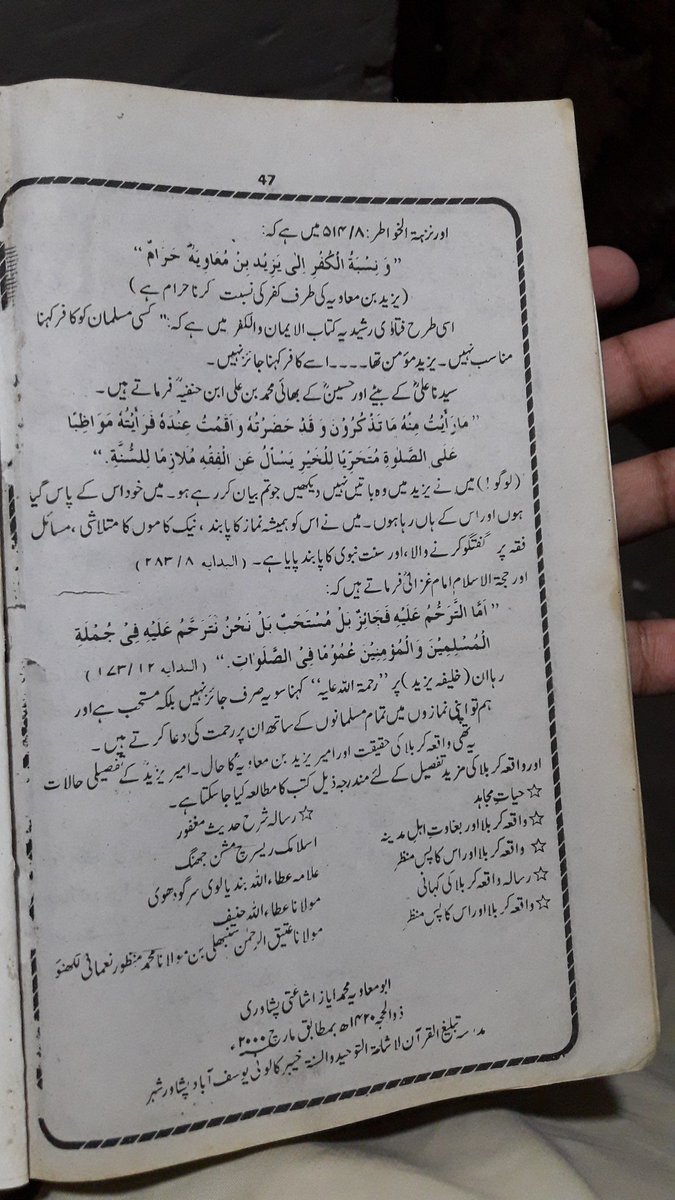 47
اور نزہۃ الخواطر: ۸/۵۱۴ میں ہے کہ:
”وَ نِسْبَةُ الْكُفْرِ اِلٰى يَزِيْدَ بْنِ مُعَاوِيَةَؓ حَرَامٌ“
(یزید بن معاویہ کی طرف کفر کی نسبت کرنا حرام ہے)
اسی طرح فتاوٰی رشیدیہ کتاب الایمان والکفر میں ہے کہ:” کسی مسلمان کو کافر کہنا
مناسب نہیں۔ یزید مؤمن تھا۔۔۔۔اسے کافر کہنا جائز نہیں۔
سیدنا علیؓ کے بیٹے اور حسینؓ کے بھائی محمد بن علی ابن حنفیہؒ فرماتے ہیں۔
”مَارَأَيْتُ مِنْهُ مَا تَذْكُرُوْنَ وَ قَدْ حَضَرْتُهٗ وَاَقَمْتُ عِنْدَهٗ فَرَأَيْتُهٗ مَوَاظِبًا
عَلَى الصَّلٰوةِ مُتَحَرِّيًا لِلْخَيْرِ يَسْأَلُ عَنِ الْفِقْهِ مُلَازِمًا لِلسُّنَّةِ.“
(لوگو!) میں نے یزید میں وہ باتیں نہیں دیکھیں جو تم بیان کر رہے ہو۔ میں خود اس کے پاس گیا
ہوں اور اس کے ہاں رہا ہوں۔ میں نے اس کو ہمیشہ نماز کا پابند ، نیک کاموں کا متلاشی ، مسائل
فقہ پر گفتگو کرنے والا، اور سنت نبوی کا پابند پایا ہے۔ (البدایہ ۸/۲۸۳)
اور حجۃ الاسلام امام غزالیؒ فرماتے ہیں کہ:
”اَمَّا التَّرَحُّمُ عَلَيْهِ فَجَائِزٌ بَلْ مُسْتَحَبٌّ بَلْ نَحْنُ نَتَرَحَّمُ عَلَيْهِ فِىْ جُمْلَةِ
الْمُسْلِمِيْنَ وَ الْمُؤْمِنِيْنَ عُمُوْمًا فِى الصَّلَوٰاتِ.“ (البدایہ ۱۲/۱۷۳)
رہا ان (خلیفہ یزید) پر ”رحمۃ اللہ علیہ“ کہنا سو یہ صرف جائز نہیں بلکہ مستحب ہے اور
ہم تو اپنی نمازوں میں تمام مسلمانوں کے ساتھ ان پر رحمت کی دعا کرتے ہیں۔
یہ تھی واقعہ کربلا کی حقیقت اور امیر یزید بن معاویہؓ کا حال۔ امیر یزیدؒ کے تفصیلی حالات
اور واقعہ کربلا کی مزید تفصیل کے لئے مندرجہ ذیل کتب کا مطالعہ کیا جاسکتا ہے۔
☆ حیات مجاہد
☆ رسالہ شرح حدیث مغفور
☆ واقعہ کربلا اور بغاوتِ اہلِ مدینہ
اسلامک ریسرچ مشن جھنگ
☆ واقعہ کربلا اور اس کا پس منظر
علامہ عطاء اللہ بندیالوی سرگودھوی
☆ رسالہ واقعہ کربلا کی کہانی
مولانا عطاء اللہ حنیف
☆ واقعہ کربلا اور اس کا پس منظر
مولانا عتیق الرحمٰن سنبھلی بن مولانا محمد منظور نعمانی لکھنو
ابو معاویہ محمد ایاز اشاعتی پشاوری
ذوالحجہ ۱۴۲۰ھ بمطابق مارچ ۲۰۰۰ء
مدرسہ تبلیغ القرآن لاشاعۃ التوحید والسنۃ خیبر کالونی یوسف آباد پشاور شہر